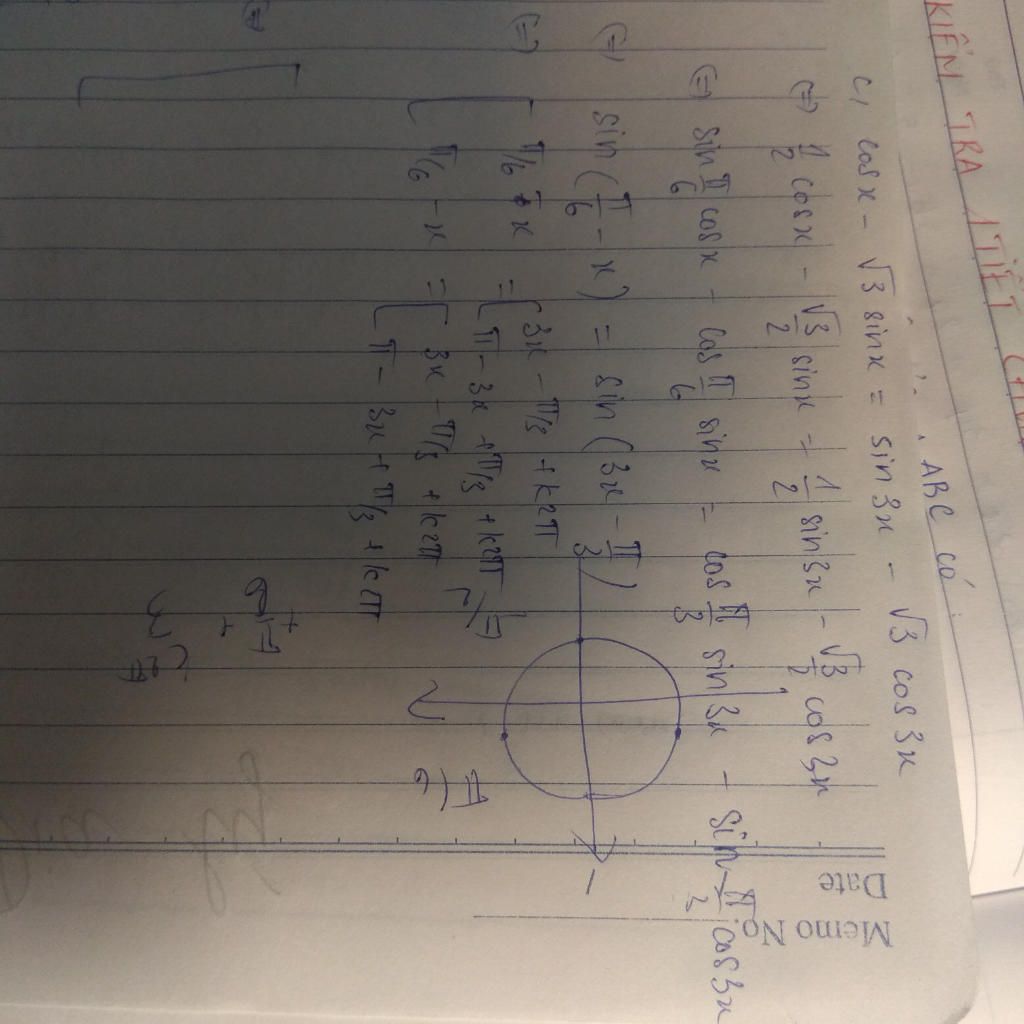 KIỂM TRA 1 TIẾT
ABC có
c, cosx - √3 sinx = sin3x - √3 cos3x
(=) 1/2 cosx - √3/2 sinx = 1/2 sin3x - √3/2 cos3x
(=) sin π/6 cosx - cos π/6 sinx = cos π/3 sin3x - sin π/3 cos3x
(=) sin(π/6 - x) = sin(3x - π/3)
(=) [ π/6 - x = [ 3x - π/3 + k2π
π - 3x + π/3 + k2π
π/6 - x = [ 3x - π/3 + k2π
π - 3x + π/3 + k2π
π/6
Memo No.
Date